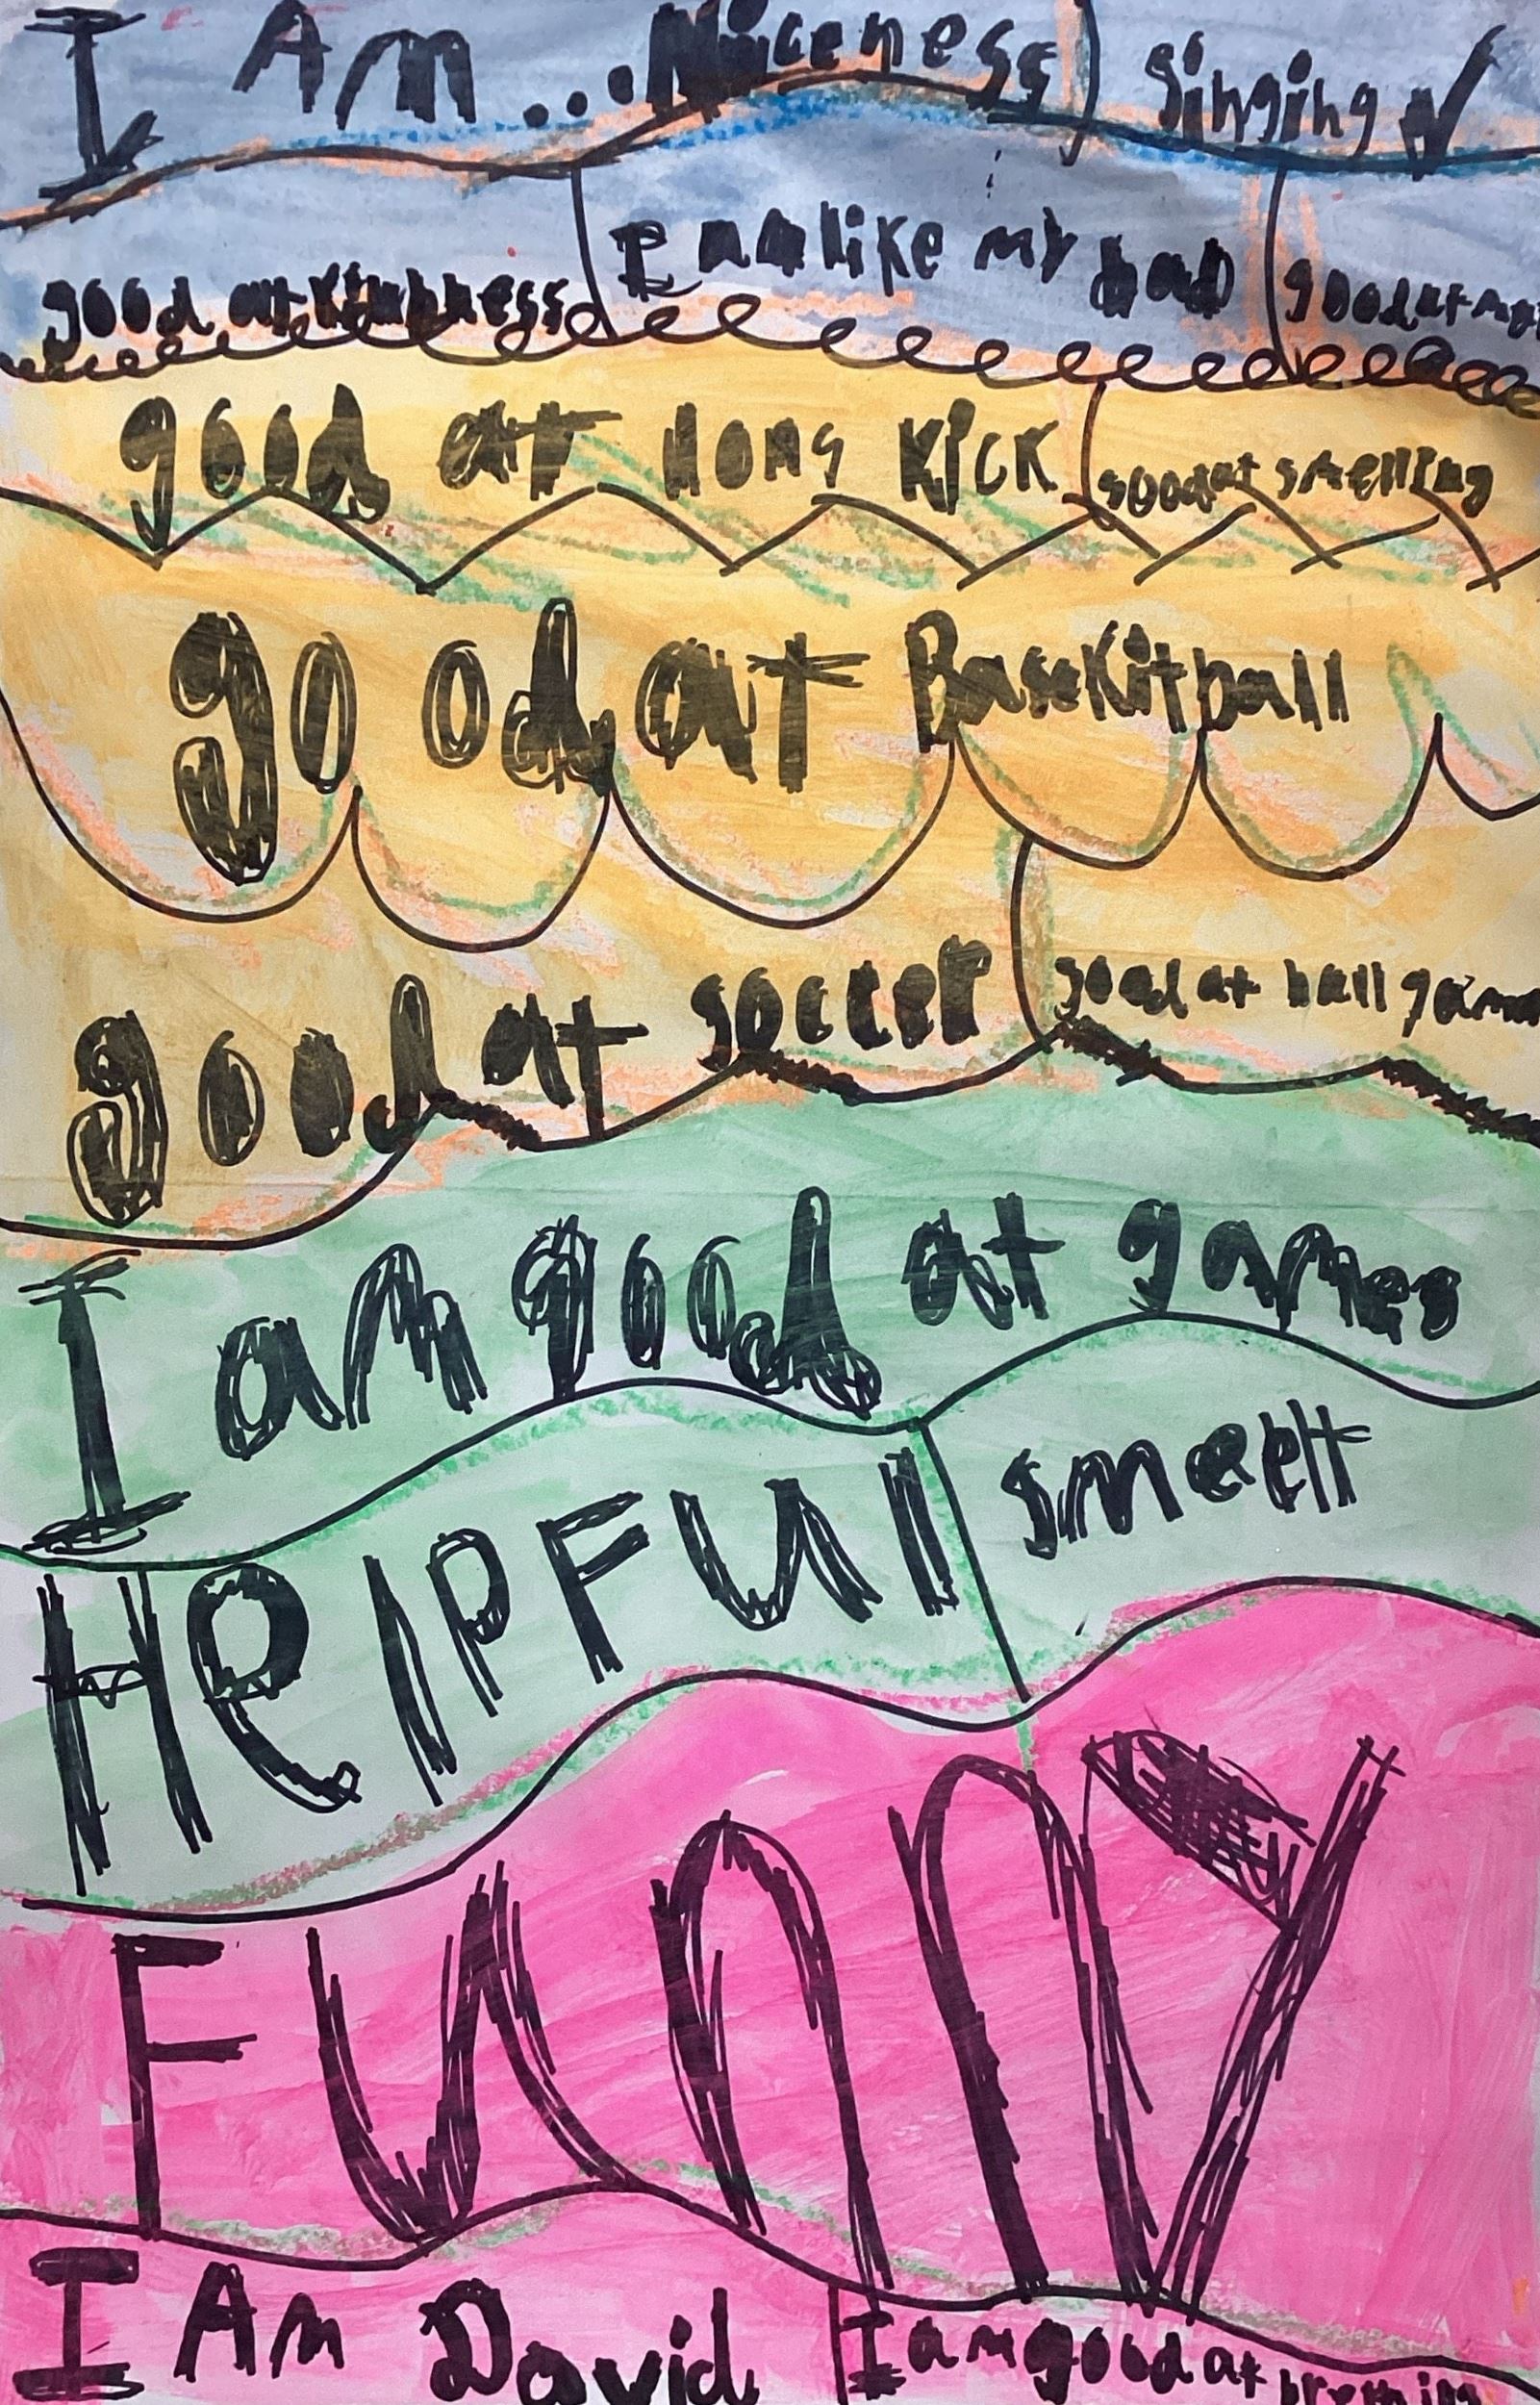 I Am... Niceness singing
good at kindness I am like my Dad good at
good at long Kick good at smelling
good at Basekitball
good at soccer good at ball game
I am good at games
HelPFul smeell
Funny
I Am David I am good at